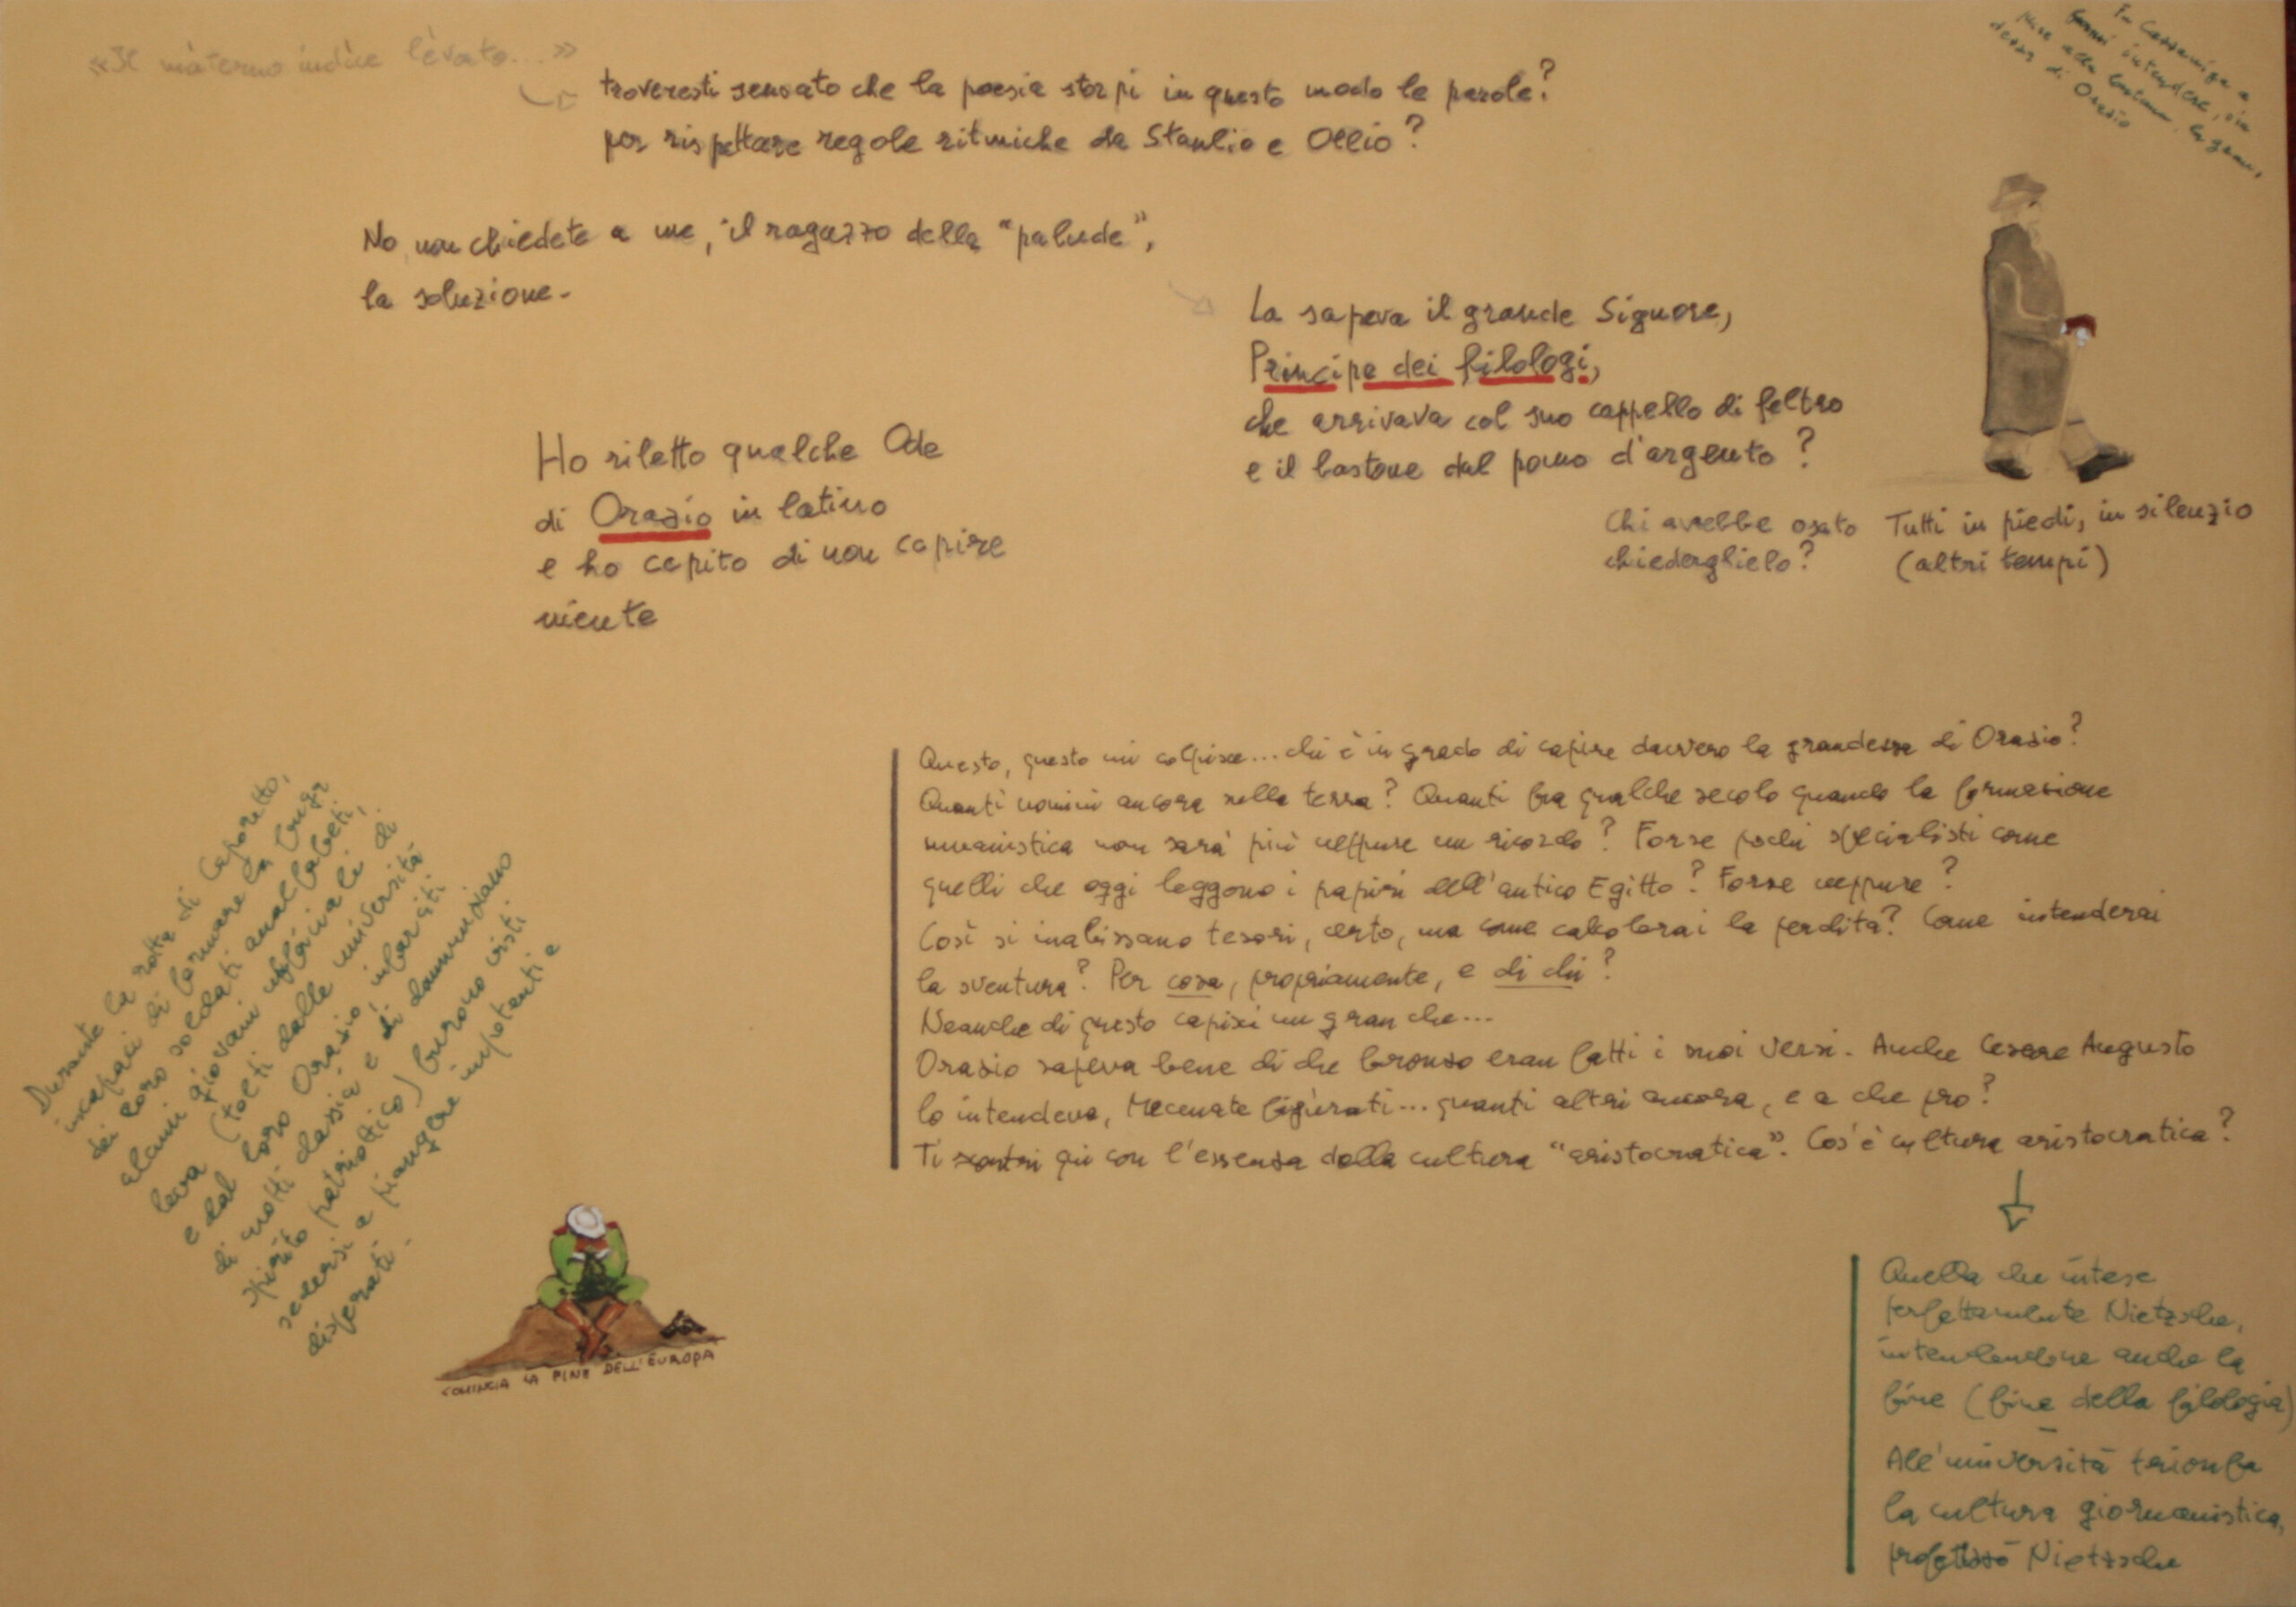 «Il màterno indìce lévato...»
troveresti sensato che la poesia storpi in questo modo le parole?
per rispettare regole ritmiche da Stanlio e Ollio?
No, non chiedete a me, il ragazzo della "palude",
la soluzione.
La sapeva il grande Signore,
Principe dei filologi,
che arrivava col suo cappello di feltro
e il bastone dal pomo d'argento?
Chi avrebbe osato
chiederglielo?
Tutti in piedi, in silenzio
(altri tempi)
Fu Castamiga a
farmi intendere, sia
pure alla lontana, la gran
dezza di Orazio
Ho riletto qualche Ode
di Orazio in latino
e ho capito di non capire
niente
Questo, questo mi colpisce... chi è in grado di capire davvero la grandezza di Orazio?
Quanti uomini ancora sulla terra? Quanti fra qualche secolo quando la formazione
umanistica non sarà più neppure un ricordo? Forse pochi specialisti come
quelli che oggi leggono i papiri dell'antico Egitto? Forse neppure?
Così si inabissano tesori, certo, ma come calcolerai la perdita? Come intenderai
la sventura? Per cosa, propriamente, e di chi?
Neanche di questo capisci un gran che...
Orazio sapeva bene di che bronzo eran fatti i suoi versi. Anche Cesare Augusto
lo intendeva, Mecenate figùrati... quanti altri ancora, e a che pro?
Ti scontri qui con l'essenza della cultura "aristocratica". Cos'è cultura aristocratica?
Quella che intese
perfettamente Nietzsche,
intendendone anche la
fine (fine della filologia)
All'università trionfa
la cultura giornalistica,
profetizzò Nietzsche
Durante la rotta di Caporetto,
incapaci di fermare la fuga
dei loro soldati analfabeti,
alcuni giovani ufficiali di
leva (tolti dalle università
e dal loro Orazio, infarciti
di molti classici e di dannunziano
spirito patriottico) furono visti
sedersi a piangere impotenti e
disperati.
COMINCIA LA FINE DELL'EUROPA